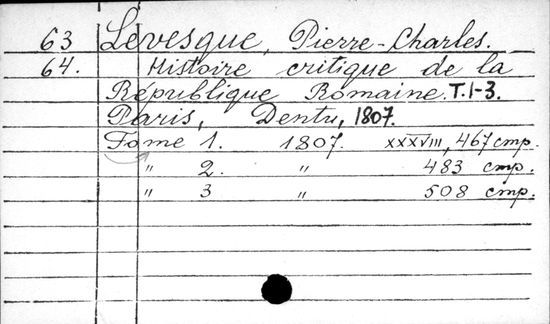 63 Levesque, Pierre-Charles.
64. Histoire critique de la
République Romaine. T.1-3.
Paris, Dentu, 1807.
Tome 1. 1807. XXXVIII, 467 стр.
" 2. " 483 стр.
" 3 " 508 стр.